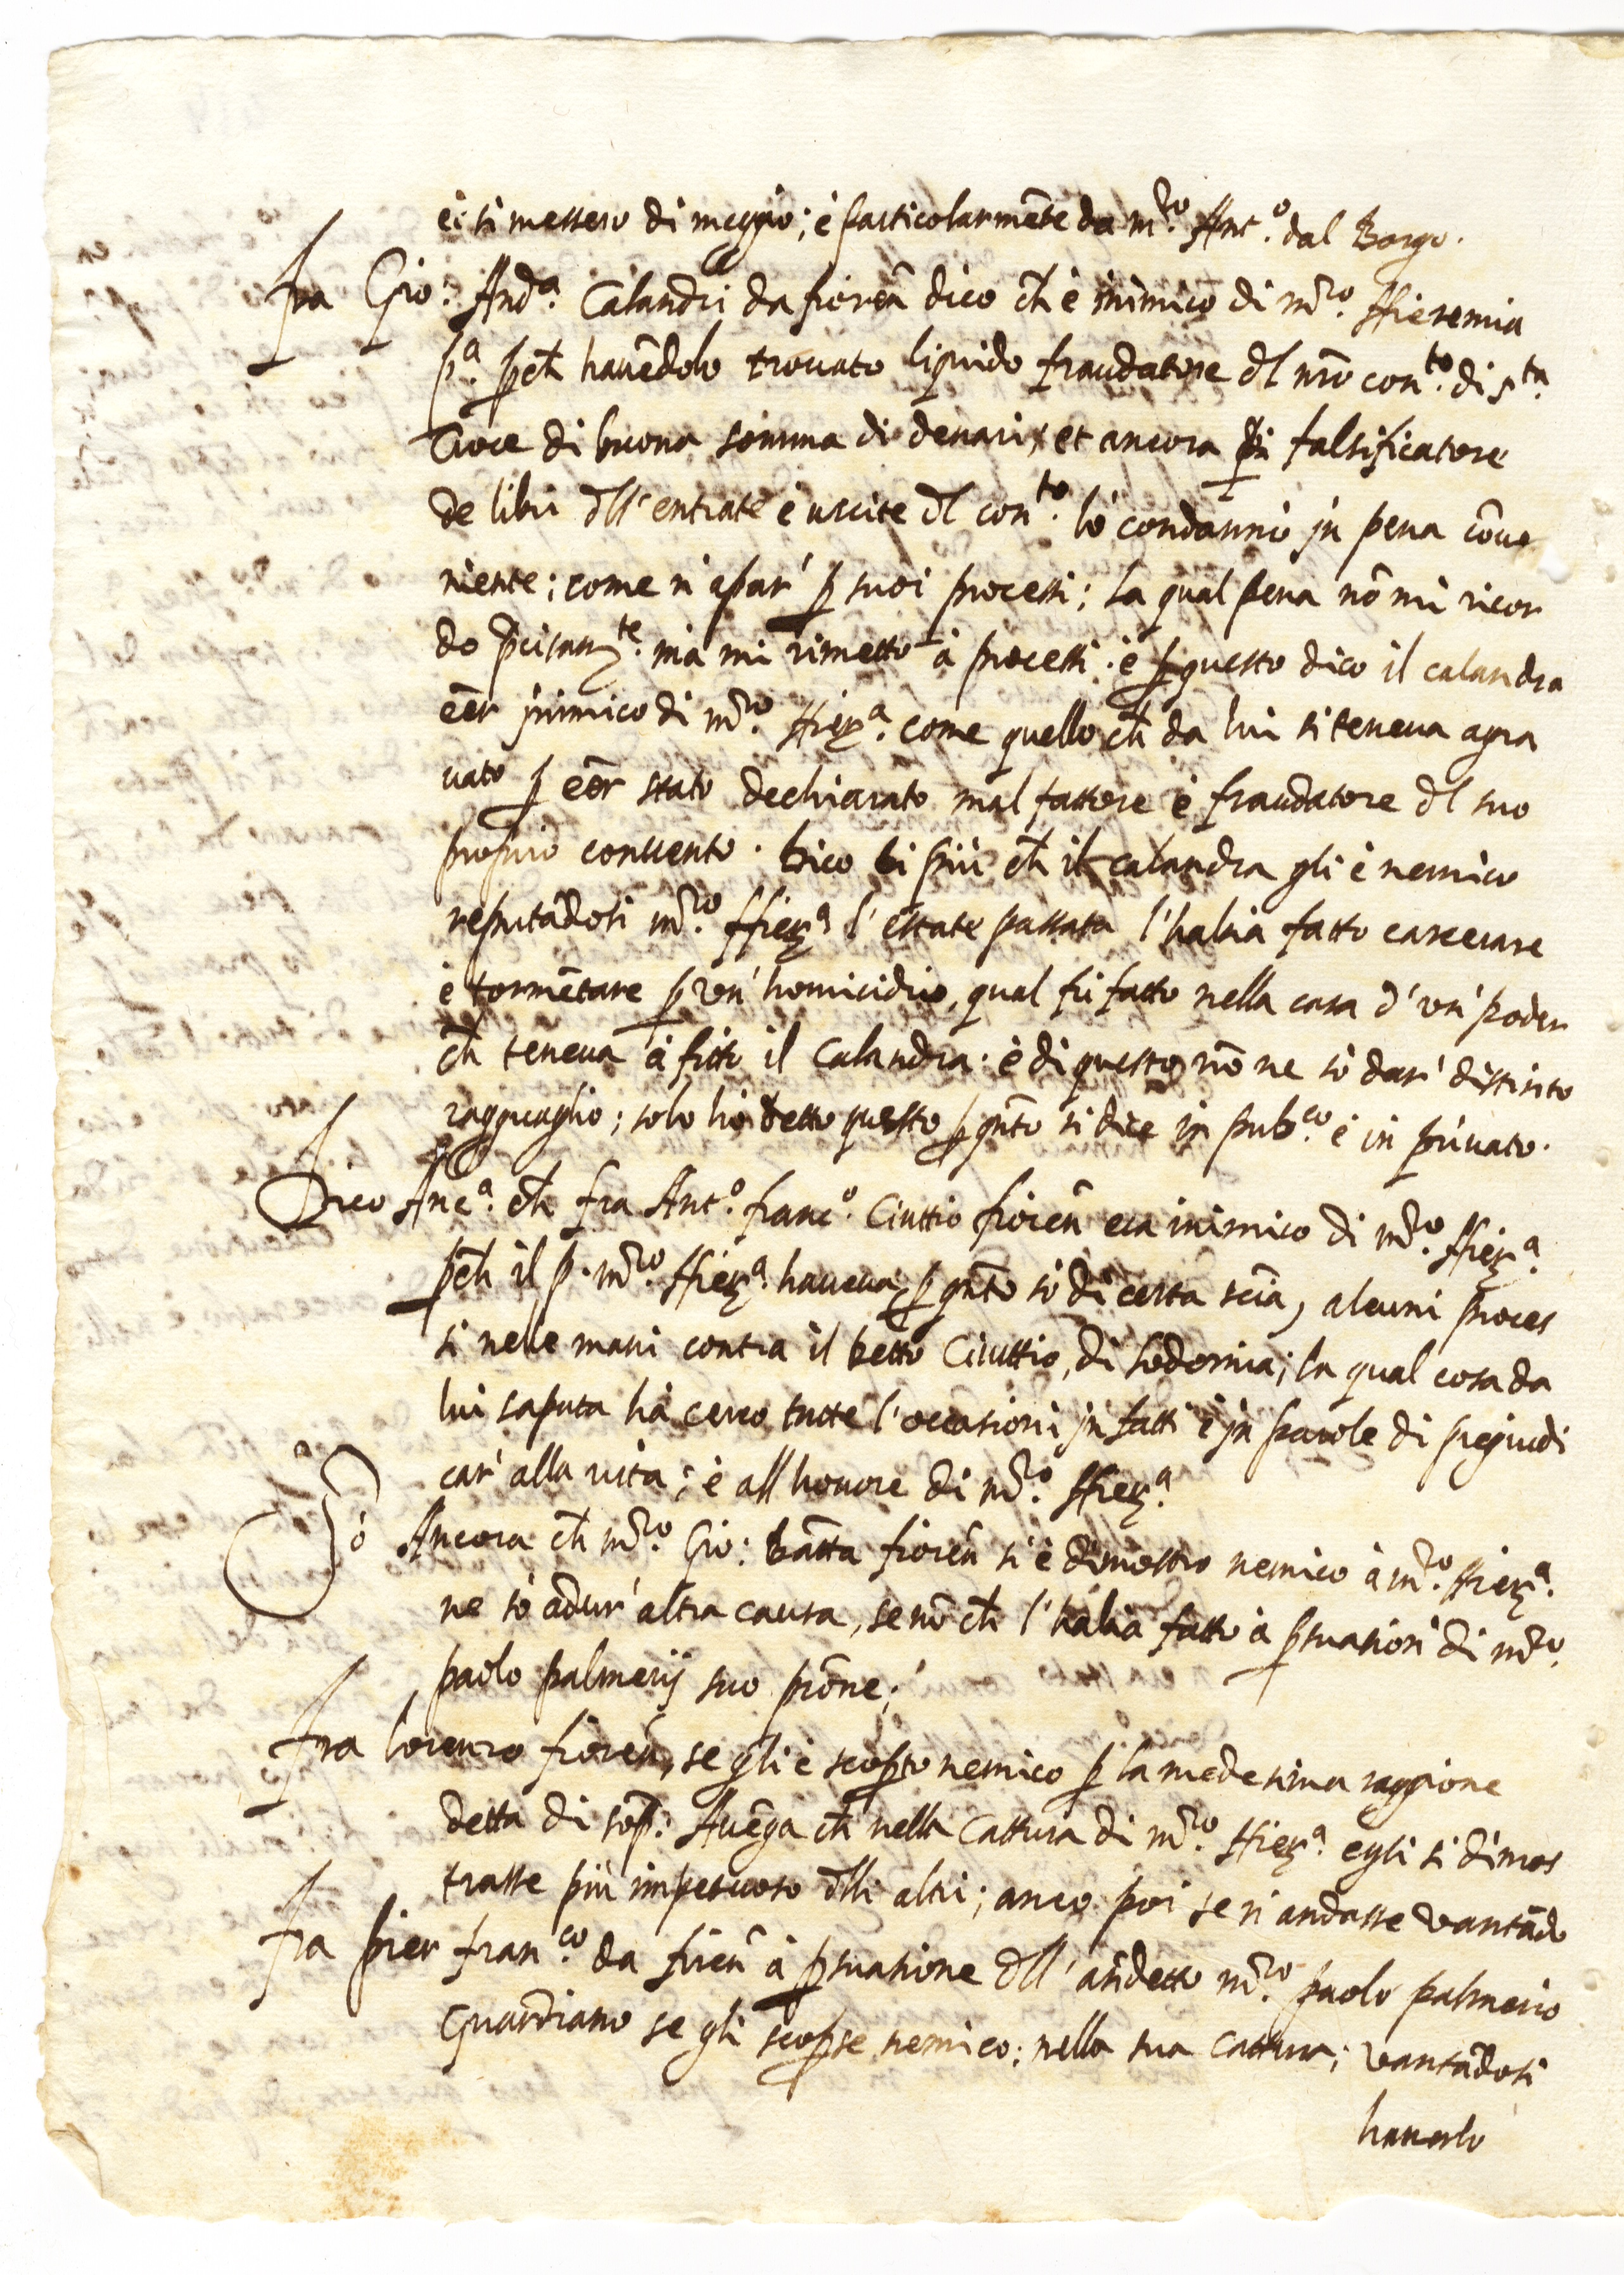 e' si messero di meggio; è particolarmēte da m.ro Ant.o dal Borgo.
fra Gio: And.a Calandri da fiorēn dico ch' è inimico di m.ro Hieremia
p.a p̱ch' hauēdolo trouato liquido fraudatore dl nr̄o con.to di s.ta
Croce di buona somma di denari, et ancora falsificatore
de libri dll'entrate è uscite dl con.to lo condannò in pena cōue
niente; come si apar' p̱ suoi processi; la qual pena nō mi ricor
do p̄cisam.te ma mi rimetto à processi. è p̱ questo dico il calandra
ēer inimico di m.ro Hier.a come quello ch' da lui si teneua agra
uato p̱ ēer stato dechiarato mal fattore è fraudatore dl suo
proprio conuento. Dico di più ch' il calandra gli è nemico
reputādosi m.ro Hier.a l'estate passata l'habia fatto carcerare
è tormētare p̱ vn' homicidio, qual fù fatto nella casa d'vn' poder
ch' teneua à fitto il Calandra: è di questo nō ne sò dar' distinto
ragguaglio; solo hò detto questo p̱ qn̄to si dice in pub.co è in priuato.
Dico Anc.a ch' fra Ant.o franc.o Ciuttio fiorēn era inimico di m.ro Hier.a
p̱ch' il p. m.ro Hier.a haueua, p̱ qn̄to sò di certa sciā, alcuni proces
si nele mani contra il detto Ciuttio, di sodomia; la qual cosa da
lui saputa hà cerco tutte l'occasioni in fatti è in parole di p̄giudi
car' alla uita; è all honore di m.ro Hier.a
Sò Ancora ch' m.ro Gio: bātta fiorēn si è dimostro nemico à m.ro Hier.a
ne sò adur' altra causa, se nō ch' l'habia fatto à p̱suasion' di m.ro
paolo palmerij suo p̄rone;
fra lorenzo fiorēn, se gli è scop̱to nemico p̱ la medesima raggione
detta di sop̄: Auēga ch' nella cattura di m.ro Hier.a egli si dimos
trasse più impetuoso dlli altri; anco poi se n' andasse vantādo
fra pier fran.co da firēn à p̱suasione dll' an̄detto m.ro paolo palmerio
Guardiano se gli scop̱se nemico: nella sua cattura; vantādosi
hauerlo